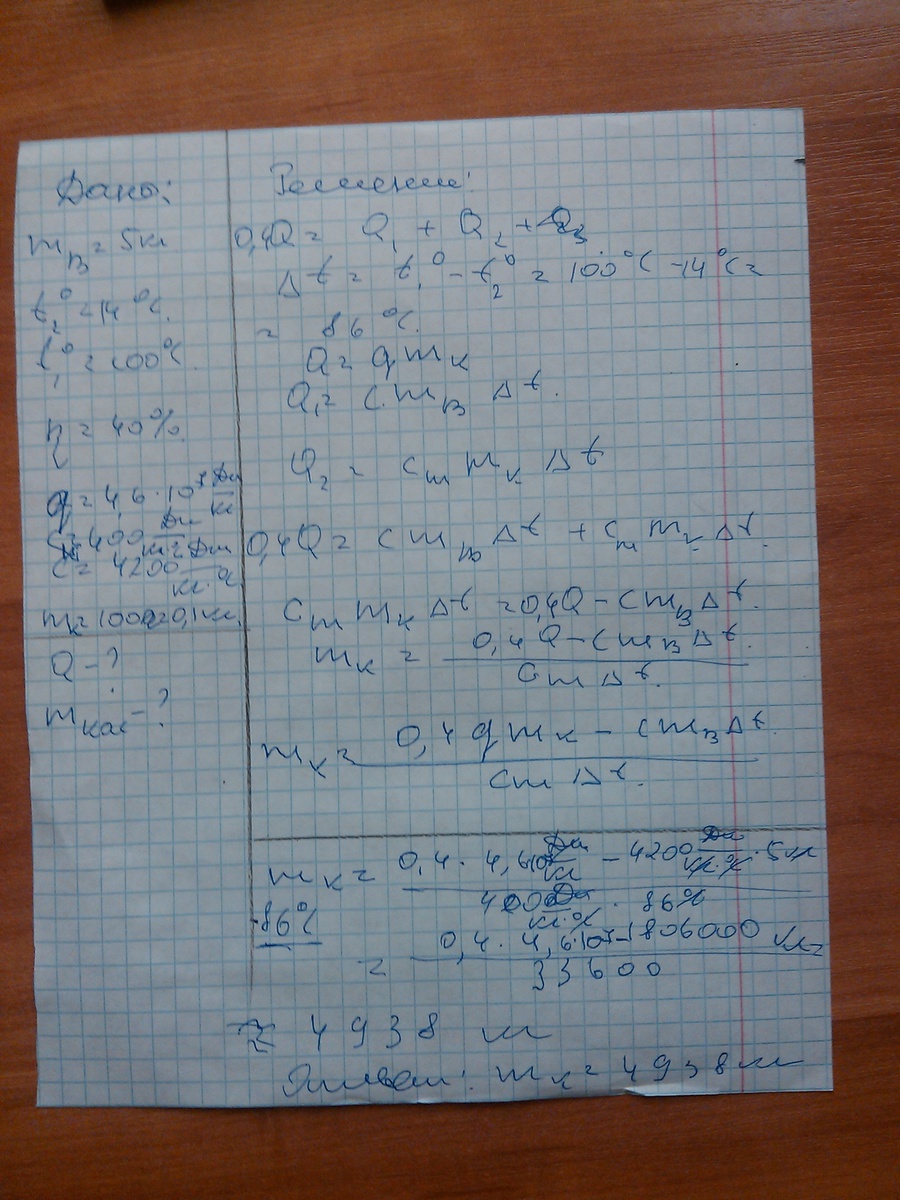 Дано:
m_в = 5 кг
t₂° = 14 °C.
t₁° = 100°C.
η = 40%.
q = 4,6·10⁷ Дж/кг
c = 4200 Дж/кг·°C
m_к = 100г = 0,1 кг.
Q - ?
m_кас - ?
Решение:
0,4Q = Q₁ + Q₂ + Q₃
Δt = t₁° - t₂° = 100°C - 14°C =
= 86 °C.
Q = q m_к
Q₁ = c m_в Δt.
Q₂ = c_m m_к Δt
0,4Q = c m_в Δt + c_m m_к Δt.
c_m m_к Δt = 0,4Q - c m_в Δt.
m_к = (0,4Q - c m_в Δt) / (c_m Δt.)
m_к = (0,4 q m_к - c m_в Δt.) / (c_m Δt.)
m_к = (0,4 · 4,6·10⁷ Дж/кг - 4200 Дж/кг·°C · 5кг) / (400 Дж/кг·°C · 86°C)
·86°C
= (0,4 · 4,6·10⁷ - 1806000) / 33600 кг =
≈ 4938 кг
Ответ: m_к = 4938 кг